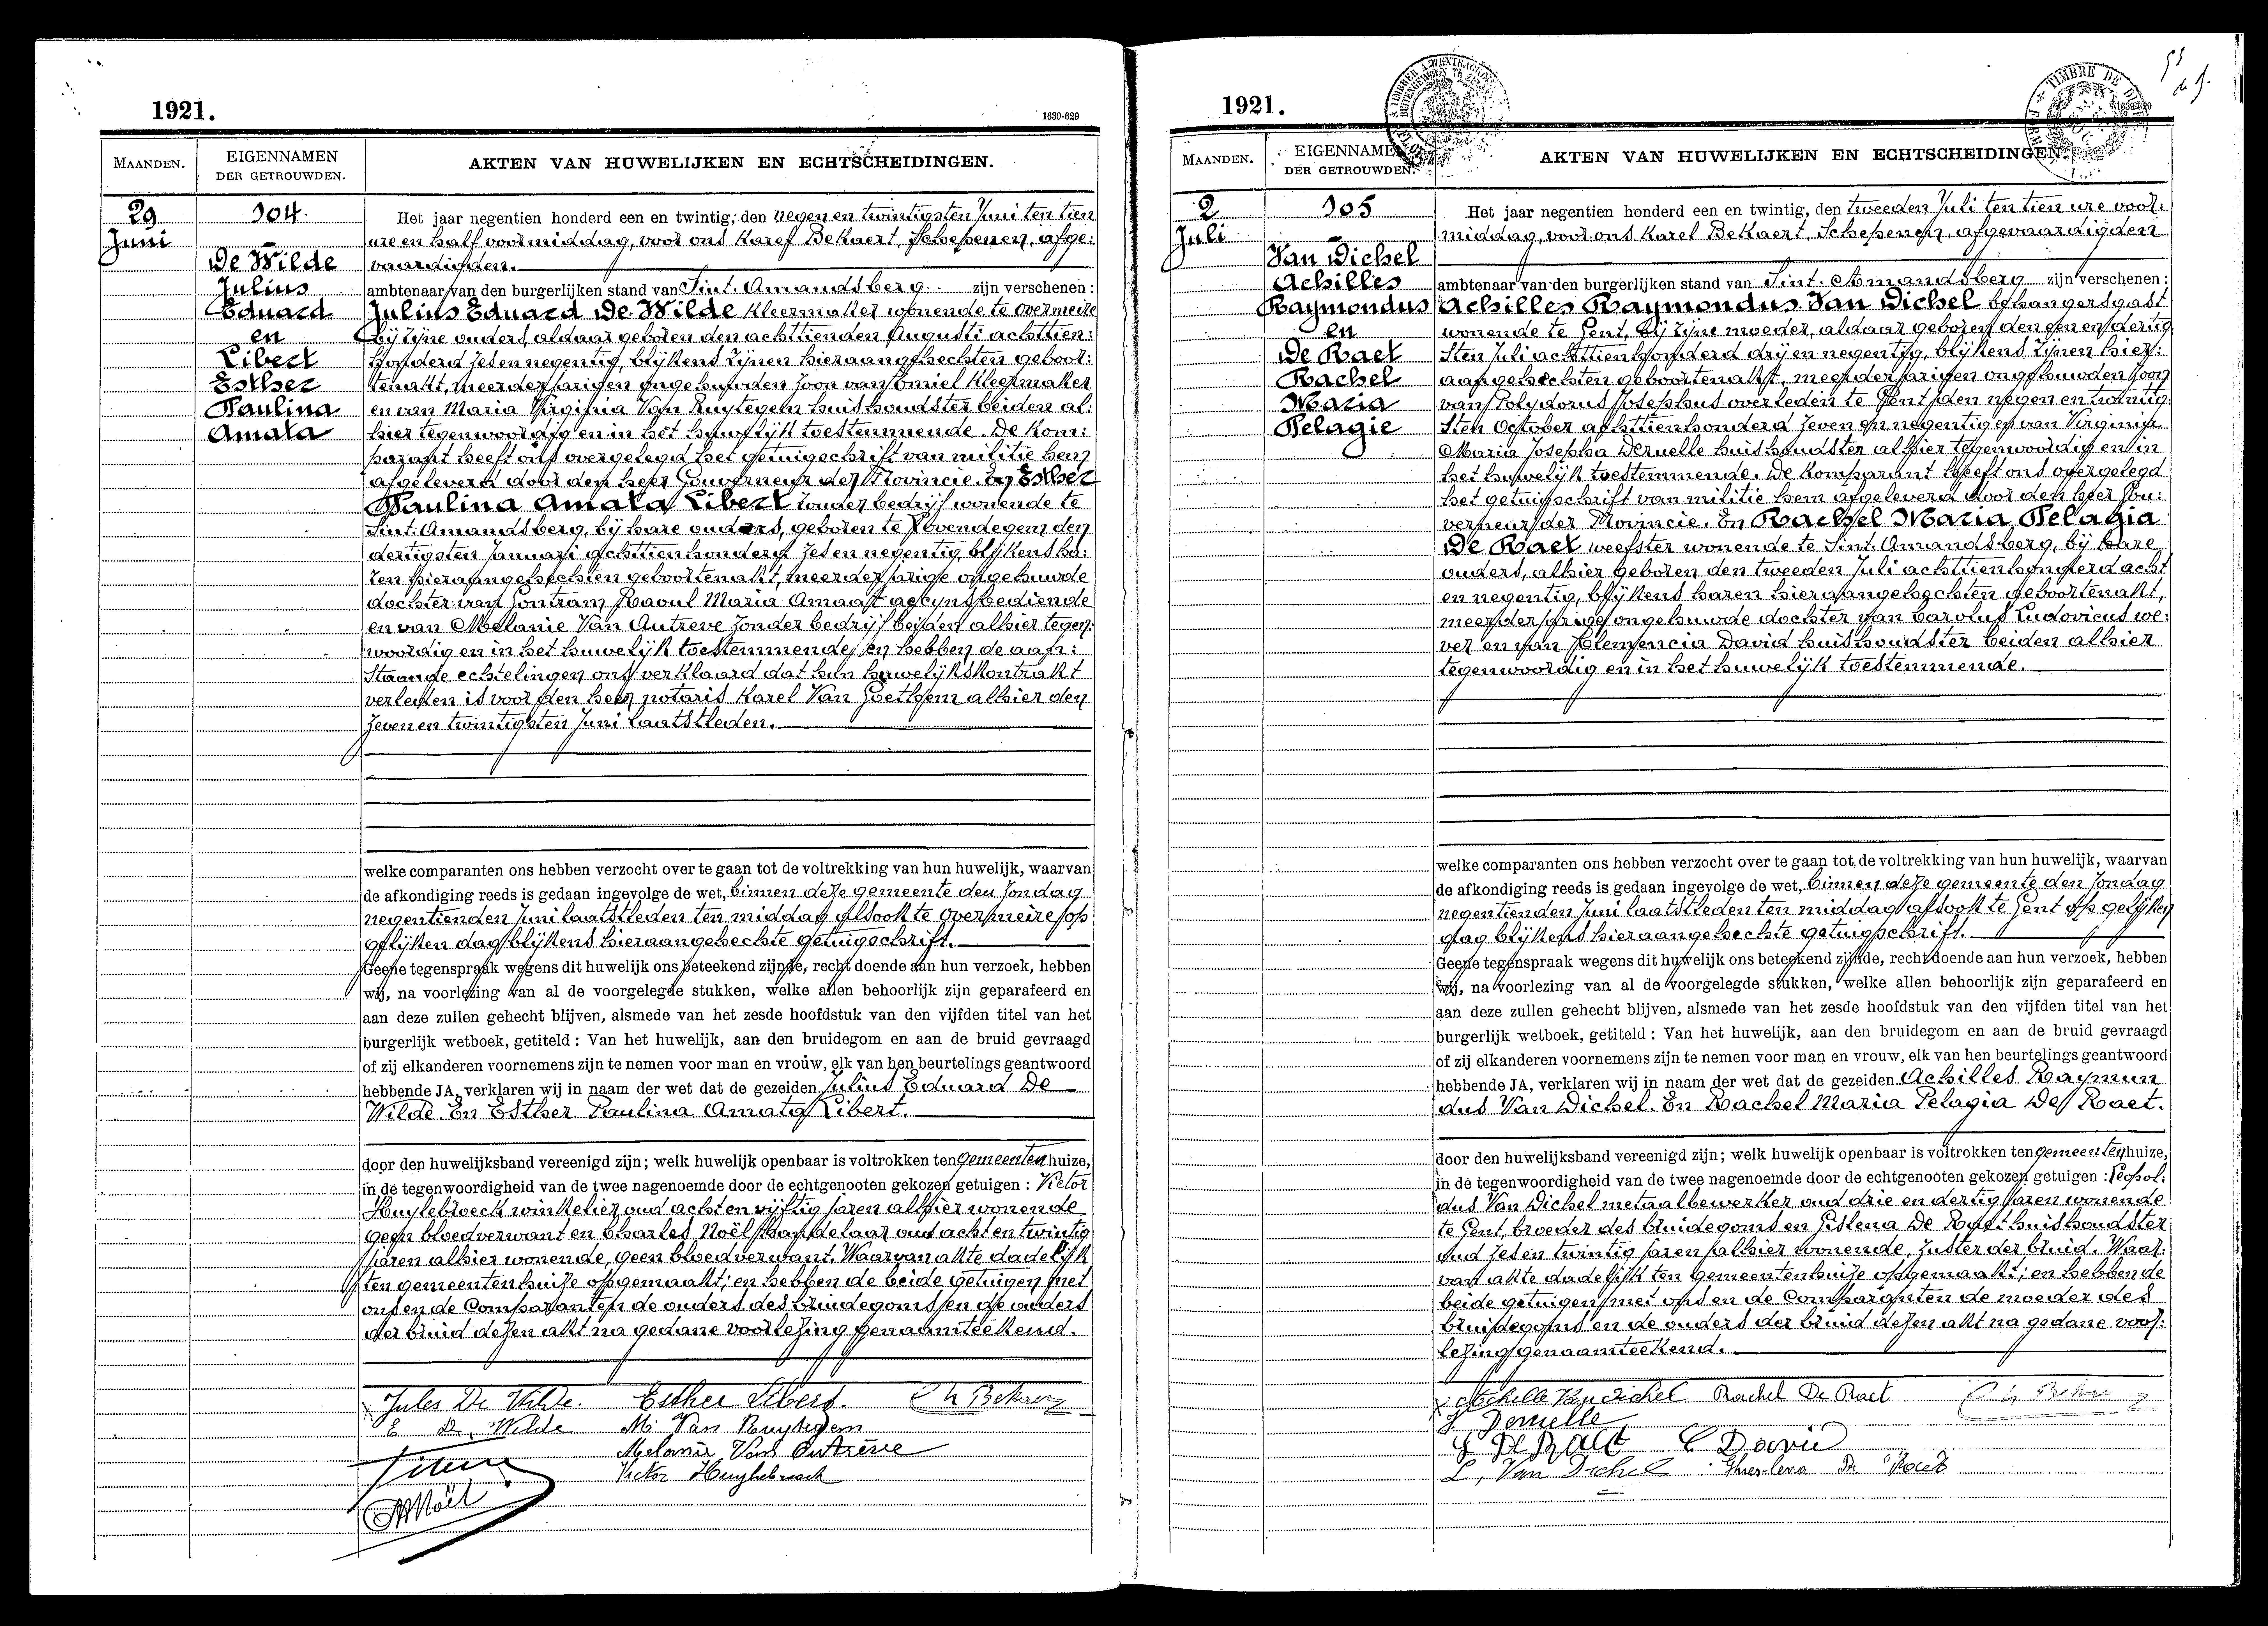 1921.
1639-629
MAANDEN.
EIGENNAMEN
DER GETROUWDEN.
AKTEN VAN HUWELIJKEN EN ECHTSCHEIDINGEN.
29
Juni
104.
De Wilde
Julius
Eduard
en
Libert
Esther
Paulina
Amata
Het jaar negentien honderd een en twintig, den negen en twintigsten Juni ten tien
ure en half voormiddag, voor ons Karel Bekaert, Schepenen, afge:
vaardigden.
ambtenaar van den burgerlijken stand van Sint. Amandsberg zijn verschenen :
Julius Eduard De Wilde kleermaker wonende te Overmeire
bij zijne ouders, aldaar geboren den achttienden Augusti achttien:
honderd zes en negentig, blijkens zijnen hieraangehechten geboor:
tenakt, meerderjarigen ongehuwden zoon van Emiel kleermaker
en van Maria Virginia Van Ruytegem huishoudster beiden al:
hier tegenwoordig en in het huwelijk toestemmende. De kom:
parant heeft ons overgelegd het getuigschrift van militie hem
afgeleverd door den heer Gouverneur der Provincie. En Esther
Paulina Amata Libert zonder bedrijf wonende te
Sint. Amandsberg, bij hare ouders, geboren te Lovendegem den
dertigsten Januari achttienhonderd zes en negentig, blijkens ha:
ren hieraangehechten geboortenakt, meerderjarige ongehuwde
dochter van Gontran Raoul Maria Amaat accynsbediende
en van Melanie Van Autreve zonder bedrijf beiden alhier tegen:
woordig en in het huwelijk toestemmende, en hebben de aan:
staande echtelingen ons verklaard dat hun huwelijkskontrakt
verleden is voor den heer notaris Karel Van Goethem alhier den
zeven en twintigsten Juni laatstleden.
welke comparanten ons hebben verzocht over te gaan tot de voltrekking van hun huwelijk, waarvan
de afkondiging reeds is gedaan ingevolge de wet, binnen deze gemeente den Zondag
negentienden Juni laatstleden ten middag alsook te Overmeire op
gelijken dag blijkens hieraangehechte getuigschrift.
Geene tegenspraak wegens dit huwelijk ons beteekend zijnde, recht doende aan hun verzoek, hebben
wij, na voorlezing van al de voorgelegde stukken, welke allen behoorlijk zijn geparafeerd en
aan deze zullen gehecht blijven, alsmede van het zesde hoofdstuk van den vijfden titel van het
burgerlijk wetboek, getiteld : Van het huwelijk, aan den bruidegom en aan de bruid gevraagd
of zij elkanderen voornemens zijn te nemen voor man en vrouw, elk van hen beurtelings geantwoord
hebbende JA, verklaren wij in naam der wet dat de gezeiden Julius Eduard De
Wilde. En Esther Paulina Amata Libert.
door den huwelijksband vereenigd zijn; welk huwelijk openbaar is voltrokken ten gemeentenhuize,
in de tegenwoordigheid van de twee nagenoemde door de echtgenooten gekozen getuigen : Victor
Huylebroeck winkelier oud acht en vijftig jaren alhier wonende
geen bloedverwant en Charles Noël handelaar oud acht en twintig
jaren alhier wonende, geen bloedverwant. Waarvan akte dadelijk
ten gemeentenhuize opgemaakt; en hebben de beide getuigen met
ons en de Comparanten de ouders des bruidegoms en de ouders
der bruid dezen akt na gedane voorlezing genaamteekend.
Jules De Wilde. Esther Libert. Ch Bekaert
E De Wilde M. Van Ruytegem
Melanie Van Autrève
Victor Huylebroeck
Noël
1921.
MAANDEN.
EIGENNAMEN
DER GETROUWDEN.
AKTEN VAN HUWELIJKEN EN ECHTSCHEIDINGEN.
2
Juli
105
Van Dichel
Achilles
Raymondus
en
De Raet
Rachel
Maria
Pelagie
Het jaar negentien honderd een en twintig, den tweeden Juli ten tien ure voor:
middag, voor ons Karel Bekaert, Schepenen, afgevaardigden
ambtenaar van den burgerlijken stand van Sint. Amandsberg zijn verschenen :
Achilles Raymondus Van Dichel behangersgast
wonende te Gent, bij zijne moeder, aldaar geboren den een en dertig:
sten Juli achttienhonderd drij en negentig, blijkens zijnen hier:
aangehechten geboortenakt, meerderjarigen ongehuwden zoon
van Polydorus Josephus overleden te Gent den negen en twintig:
sten October achttienhonderd zeven en negentig en van Virginie
Maria Josepha Deruelle huishoudster alhier tegenwoordig en in
het huwelijk toestemmende. De komparant heeft ons overgelegd
het getuigschrift van militie hem afgeleverd door den heer Gou:
verneur der Provincie. En Rachel Maria Pelagia
De Raet weefster wonende te Sint. Amandsberg, bij hare
ouders, alhier geboren den tweeden Juli achttienhonderd acht
en negentig, blijkens haren hieraangehechten geboortenakt,
meerderjarige ongehuwde dochter van Carolus Ludovicus we:
ver en van Clemencia David huishoudster beiden alhier
tegenwoordig en in het huwelijk toestemmende.
welke comparanten ons hebben verzocht over te gaan tot de voltrekking van hun huwelijk, waarvan
de afkondiging reeds is gedaan ingevolge de wet, binnen deze gemeente den Zondag
negentienden Juni laatstleden ten middag alsook te Gent op gelijken
dag blijkens hieraangehechte getuigschrift.
Geene tegenspraak wegens dit huwelijk ons beteekend zijnde, recht doende aan hun verzoek, hebben
wij, na voorlezing van al de voorgelegde stukken, welke allen behoorlijk zijn geparafeerd en
aan deze zullen gehecht blijven, alsmede van het zesde hoofdstuk van den vijfden titel van het
burgerlijk wetboek, getiteld : Van het huwelijk, aan den bruidegom en aan de bruid gevraagd
of zij elkanderen voornemens zijn te nemen voor man en vrouw, elk van hen beurtelings geantwoord
hebbende JA, verklaren wij in naam der wet dat de gezeiden Achilles Raymun
dus Van Dichel. En Rachel Maria Pelagia De Raet.
door den huwelijksband vereenigd zijn; welk huwelijk openbaar is voltrokken ten gemeentenhuize,
in de tegenwoordigheid van de twee nagenoemde door de echtgenooten gekozen getuigen : Leopol:
dus Van Dichel metaalbewerker oud drie en dertig jaren wonende
te Gent, broeder des bruidegoms en Gislena De Raet huishoudster
oud zes en twintig jaren alhier wonende, zuster der bruid. Waar:
van akte dadelijk ten gemeentenhuize opgemaakt; en hebben de
beide getuigen met ons en de Comparanten de moeder des
bruidegoms en de ouders der bruid dezen akt na gedane voor:
lezing genaamteekend.
Achille Van Dichel Rachel De Raet Ch Bekaert
V Deruelle
De Raet C David
L, Van Dichel Ghislena De Raet